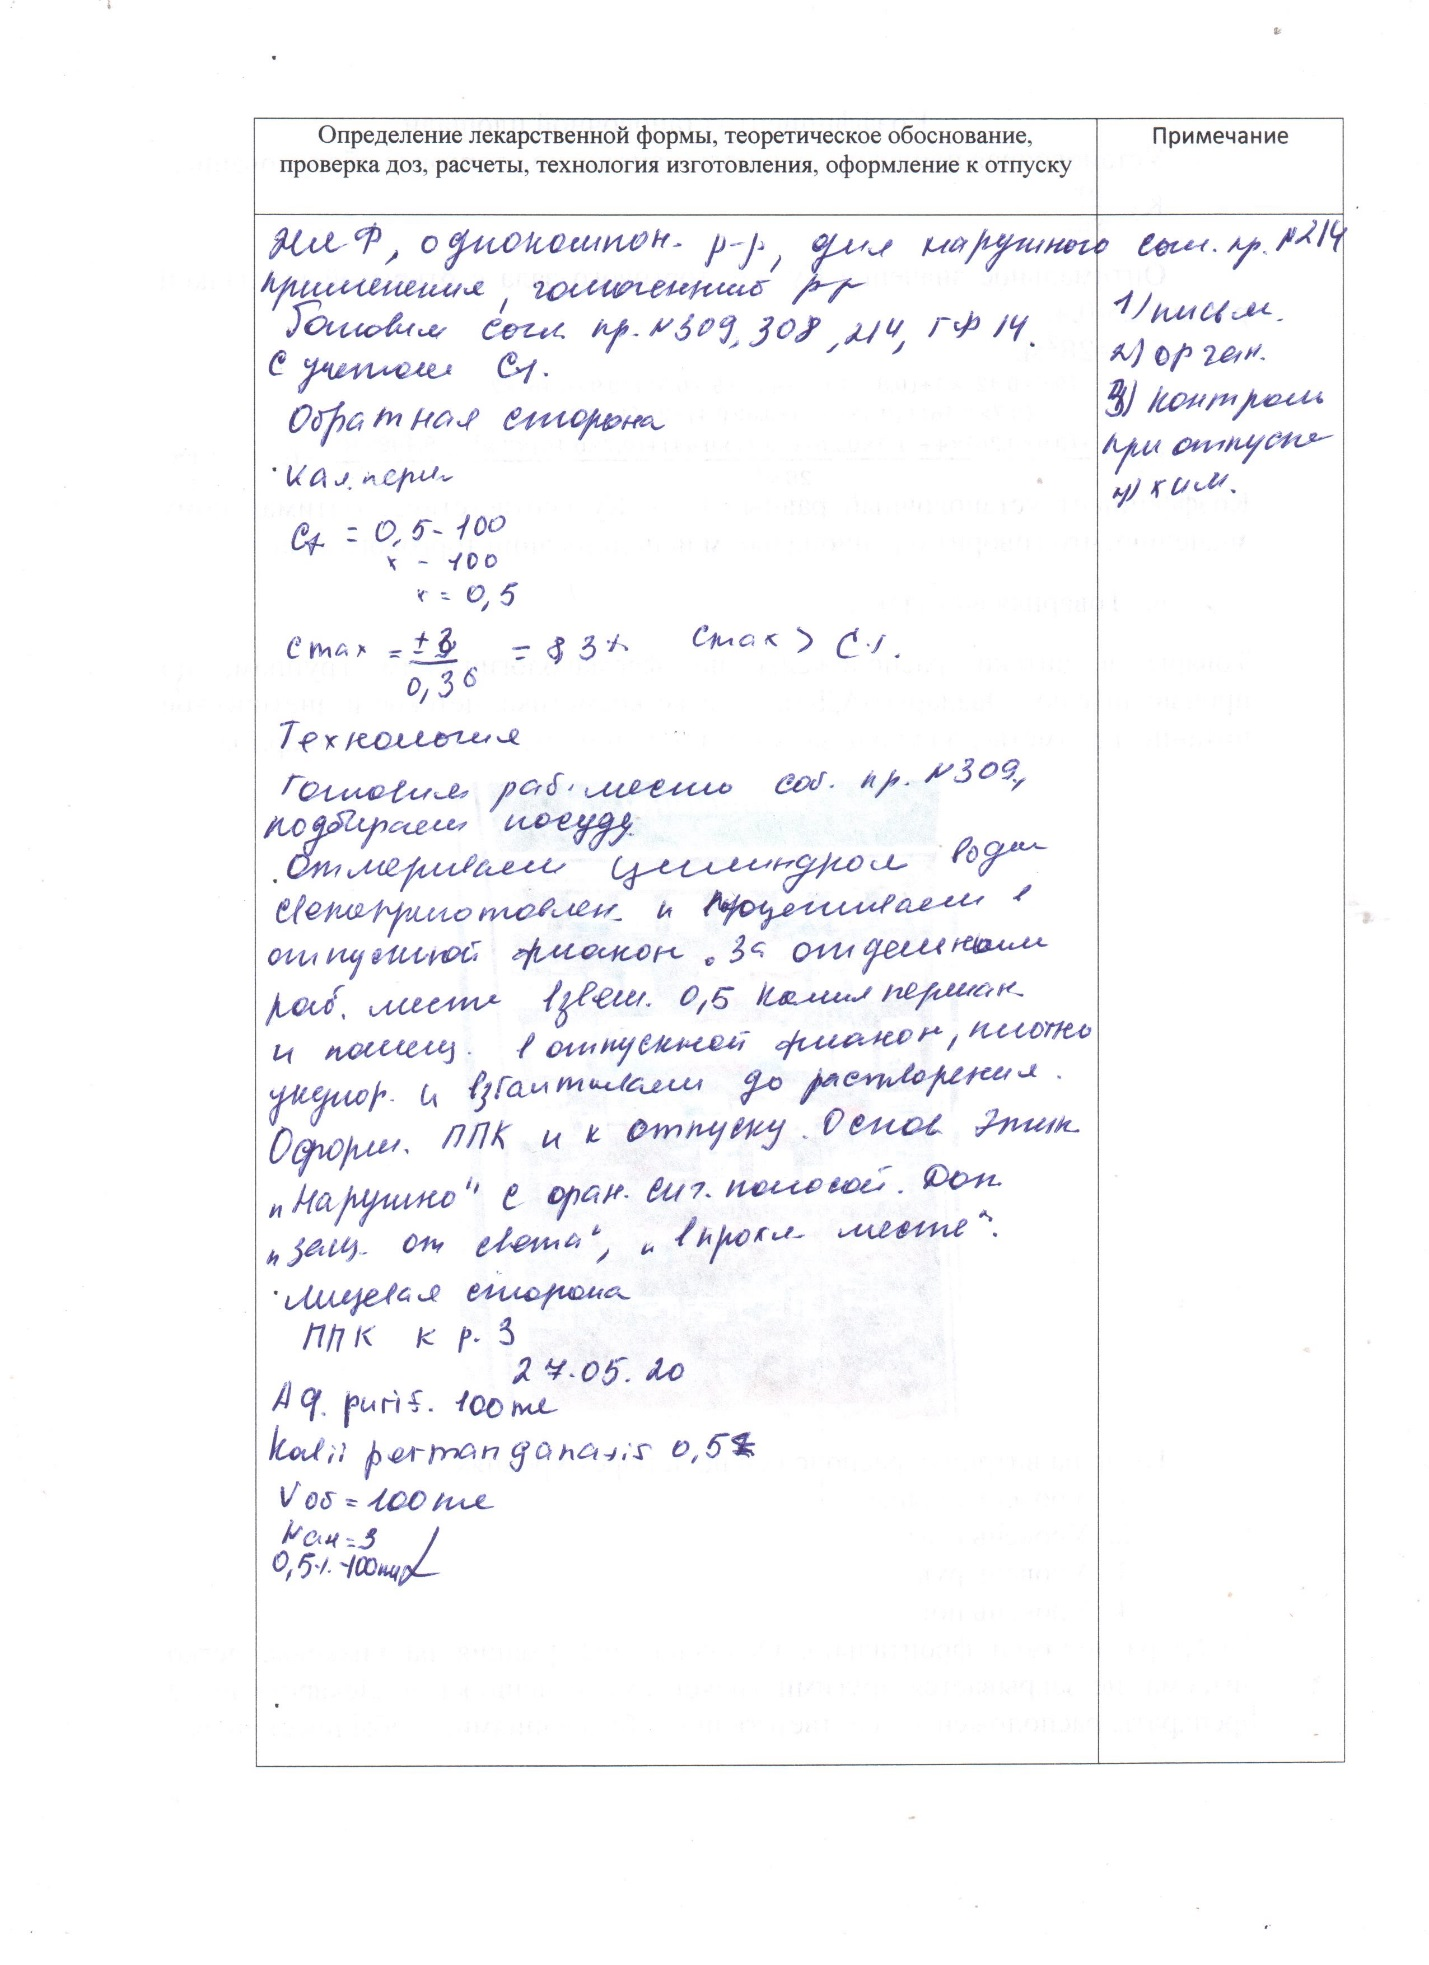 Определение лекарственной формы, теоретическое обоснование,
проверка доз, расчеты, технология изготовления, оформление к отпуску
Примечание
ЖЛФ, однокомпон. р-р, для наружного
применения, р-р
Готовим согл. пр. №309, 308, 214, ГФ 14.
С учетом С%.
Обратная сторона
Кал. перм.
С% = 0,5 - 100
х - 100
х = 0,5
Cmax = ±3 / 0,36 = 8,3% Cmax > C%.
Технология
Готовим раб. место соб. пр. №309,
подбираем посуду.
Отмериваем цилиндром воды
свежеприготовлен. и процеживаем в
отпускной флакон. За отдельным
раб. месте взвеш. 0,5 калия перман.
и помещ. в отпускной флакон, плотно
укупор. и взбалтываем до растворения.
Оформ. ППК и к отпуску. Основ этик.
„Наружно" с оран. сиг. полосой. Доп.
„защ. от света", „в прохл. месте".
Лицевая сторона
ППК к р. 3
27.05.20
Aq. purif. 100ml
Kalii permanganatis 0,5
Vоб = 100ml
Nан = 3
0,5% - 100ml
согл. пр. №214
1) письм.
2) орган.
3) контроль
при отпуске
4) хим.